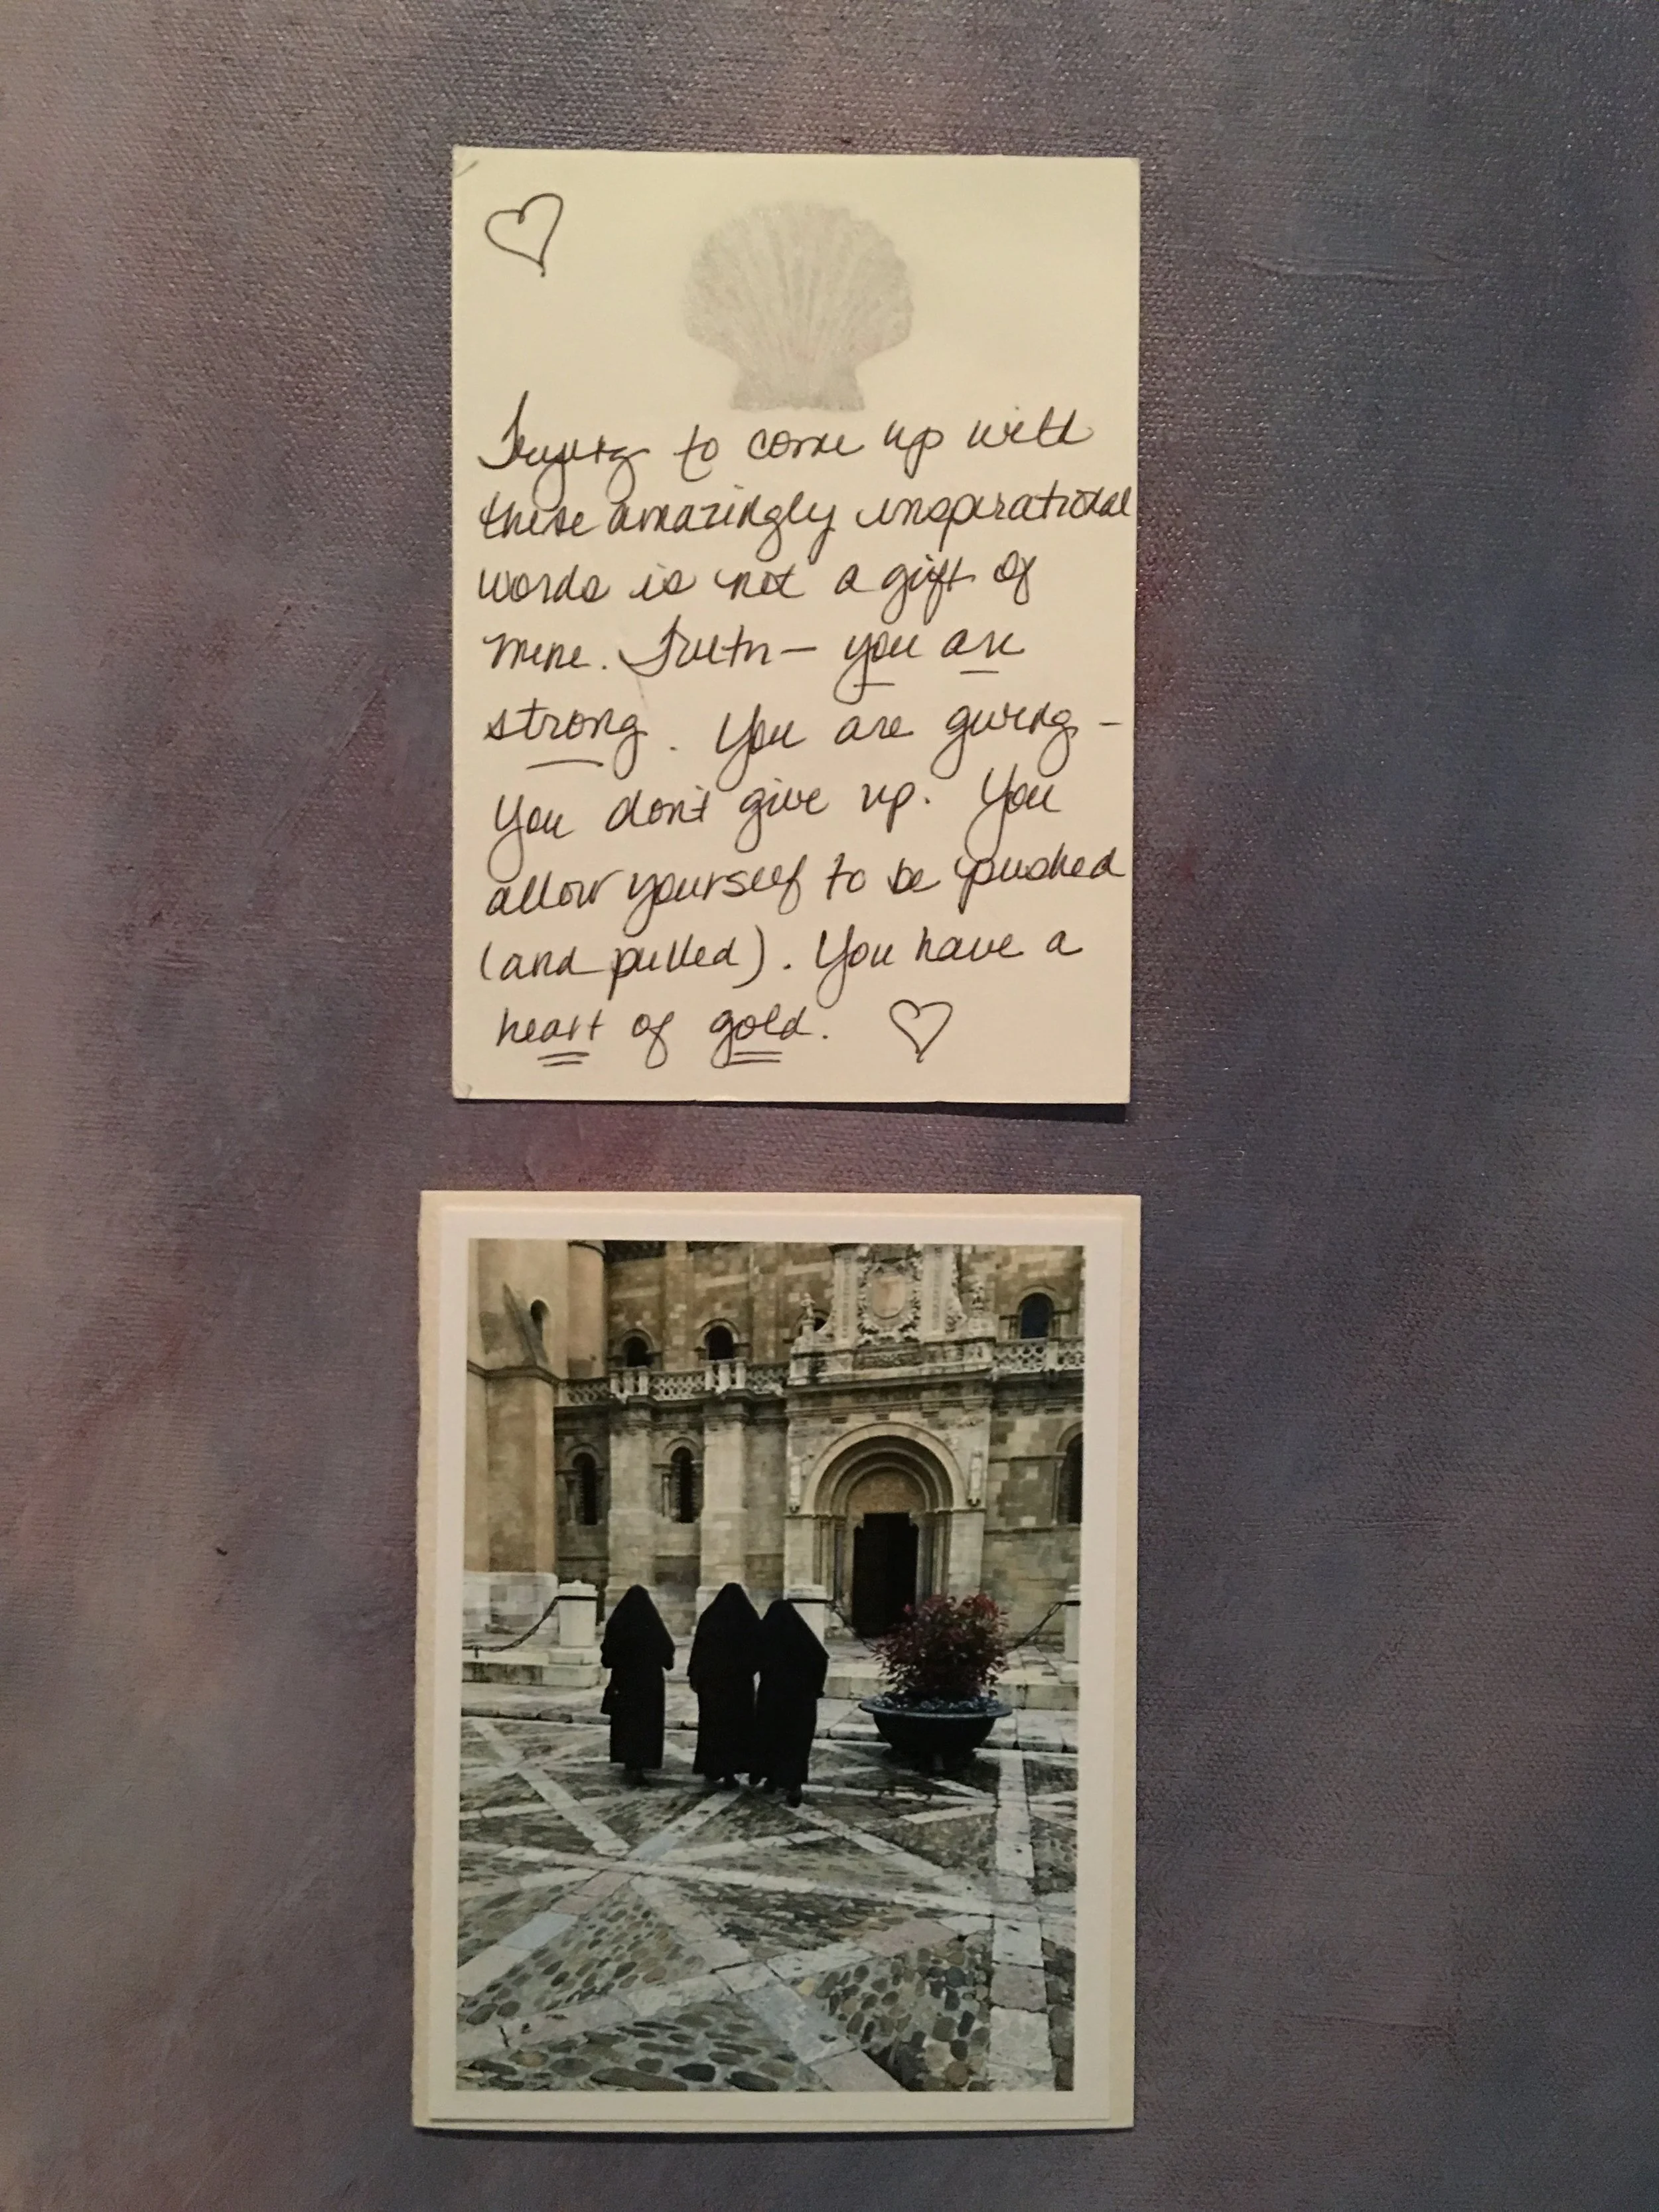 Trying to come up with
these amazingly inspirational
words is not a gift of
mine. Truth — you are
strong. You are giving -
You don't give up. You
allow yourself to be pushed
(and pulled). You have a
heart of gold. ♡